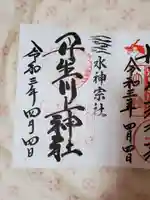 水神宗社
丹生川上神社
令和三年四月四日
令和三年四月四日